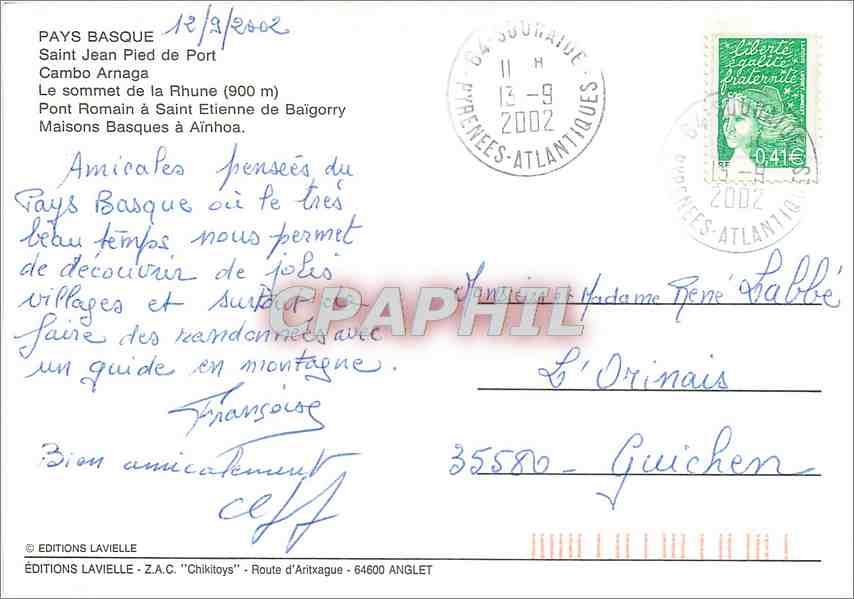 PAYS BASQUE 12/9/2002
Saint Jean Pied de Port
Cambo Arnaga
Le sommet de la Rhune (900 m)
Pont Romain à Saint Etienne de Baïgorry
Maisons Basques à Aïnhoa.
64-SOURAIDE
11 H
13 -9
2002
PYRENEES-ATLANTIQUES
liberté
égalité
fraternité
RF 0,41€
64-SOURAIDE
13 -9
2002
PYRENEES-ATLANTIQUES
Amicales pensées du
Pays Basque où le très
beau temps nous permet
de découvrir de jolis
villages et surtout de
faire des randonnées avec
un guide en montagne.
Françoise
Bien amicalement
CPAPHIL
Monsieur et Madame René Labbé
L'Orinais
35580 - Guichen
© EDITIONS LAVIELLE
ÉDITIONS LAVIELLE - Z.A.C. "Chikitoys" - Route d'Aritxague - 64600 ANGLET